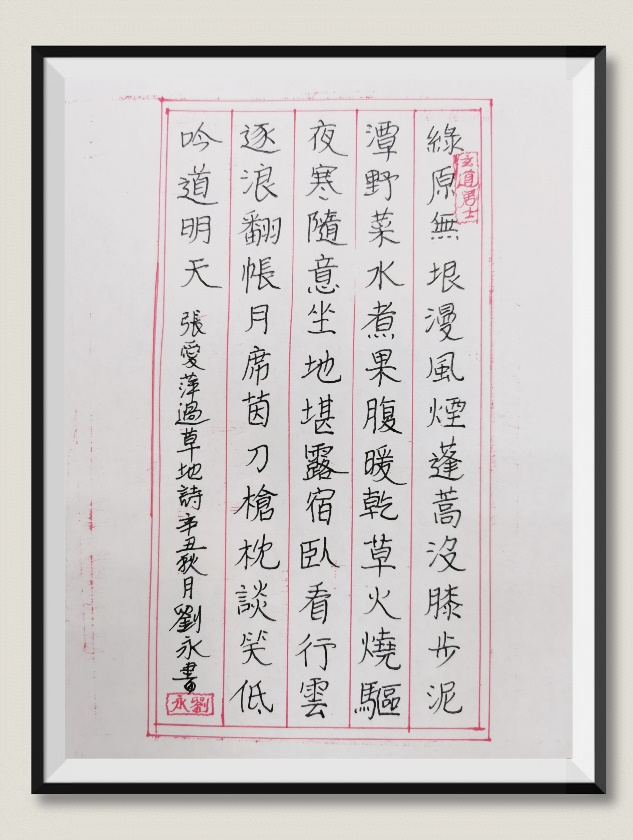 玄道居士
綠原無垠漫風煙蓬蒿沒膝步泥
潭野菜水煮果腹暖乾草火燒驅
夜寒隨意坐地堪露宿臥看行雲
逐浪翻帳月席茵刀槍枕談笑低
吟道明天 張愛萍過草地詩辛丑秋月劉永書
劉永